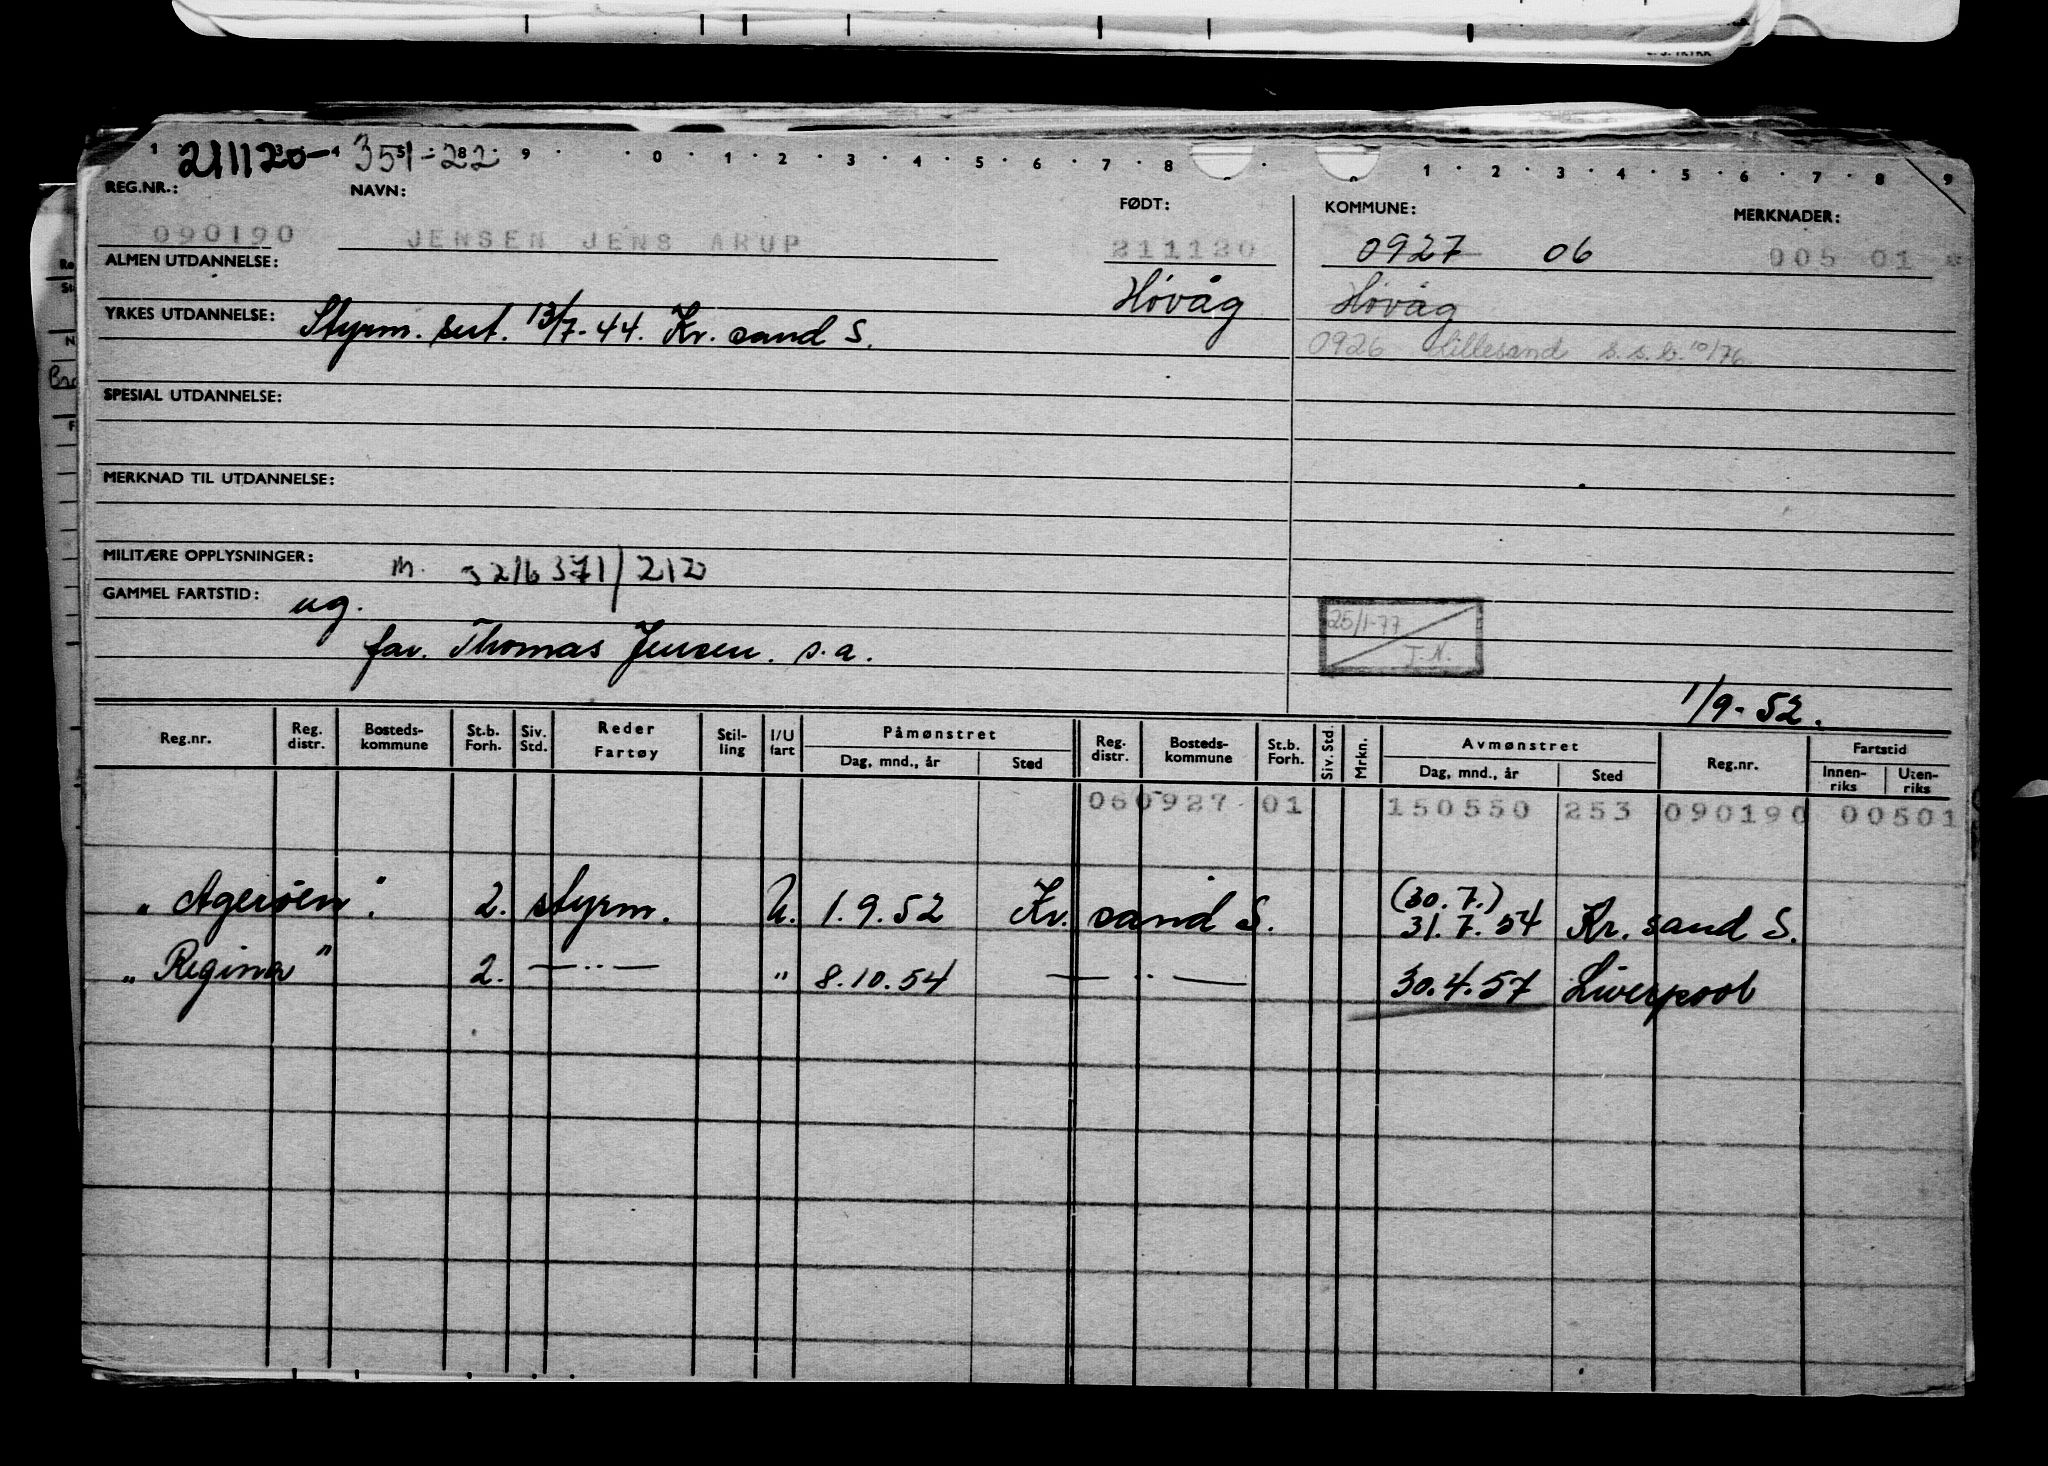 211120-351-22
REG.NR.: NAVN: FØDT: KOMMUNE: MERKNADER:
090190 JENSEN JENS ARUP 211120 0927 06 005 01
ALMEN UTDANNELSE: Høvåg Høvåg
YRKES UTDANNELSE: Styrm. sert. 13/7-44. Kr. sand S.
0926 Lillesand s.s.b. 10/76
SPESIAL UTDANNELSE:
MERKNAD TIL UTDANNELSE:
MILITÆRE OPPLYSNINGER: m. 3216371/212
GAMMEL FARTSTID: ug.
25/1-77
T.N.
far. Thomas Jensen. s.a.
1/9-52.
Reg.nr. Reg. distr. Bosteds-kommune St.b. Forh. Siv. Std. Reder Fartøy Stil-ling I/U fart Påmønstret Dag, mnd., år Sted Reg. distr. Bosteds-kommune St.b. Forh. Siv. Std. Mrkn. Avmønstret Dag, mnd., år Sted Reg.nr. Fartstid Innen-riks Uten-riks
060927 01 150550 253 090190 00501
„Agerøen". 2. styrm. U. 1.9.52 Kr. sand S. (30.7.) 31.7.54 Kr. sand S.
„Regina" 2. —··— " 8.10.54 —··— 30.4.57 Liverpool